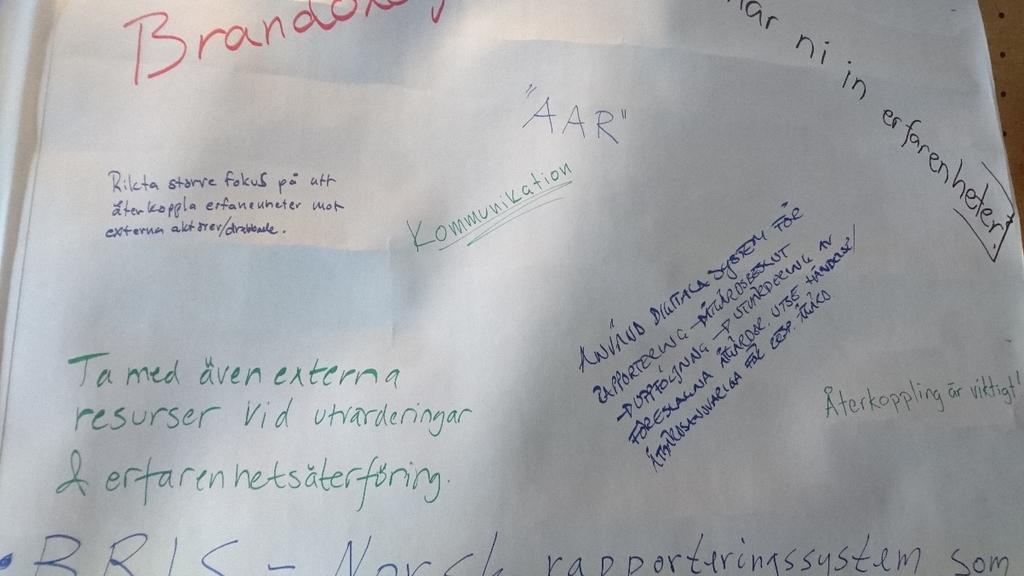 när ni in erfarenheter?
"AAR"
Rikta större fokus på att
återkoppla erfarenheter mot
externa aktörer/drabbade.
Kommunikation
ANVÄND DIGITALA SYSTEM FÖR
RAPPORTERING → ÅTGÄRDSBESLUT
→ UPPFÖLJNING → UTVÄRDERING AV
FÖRESLAGNA ÅTGÄRDER UTSE HÄNDELSE/
ÅTGÄRDSANSVARIGA FÖR RESP. ÄREND
Ta med även externa
resurser vid utvärderingar
& erfarenhetsåterföring.
Återkoppling är viktigt!
• BRIS - Norsk rapporteringssystem som